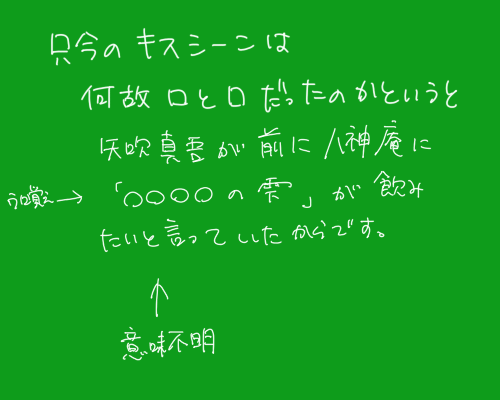 只今のキスシーンは
何故口と口だったのかというと
矢吹真吾が前に八神庵に
うろ覚え→「○○○○の雫」が飲み
たいと言っていたからです。
↑
意味不明